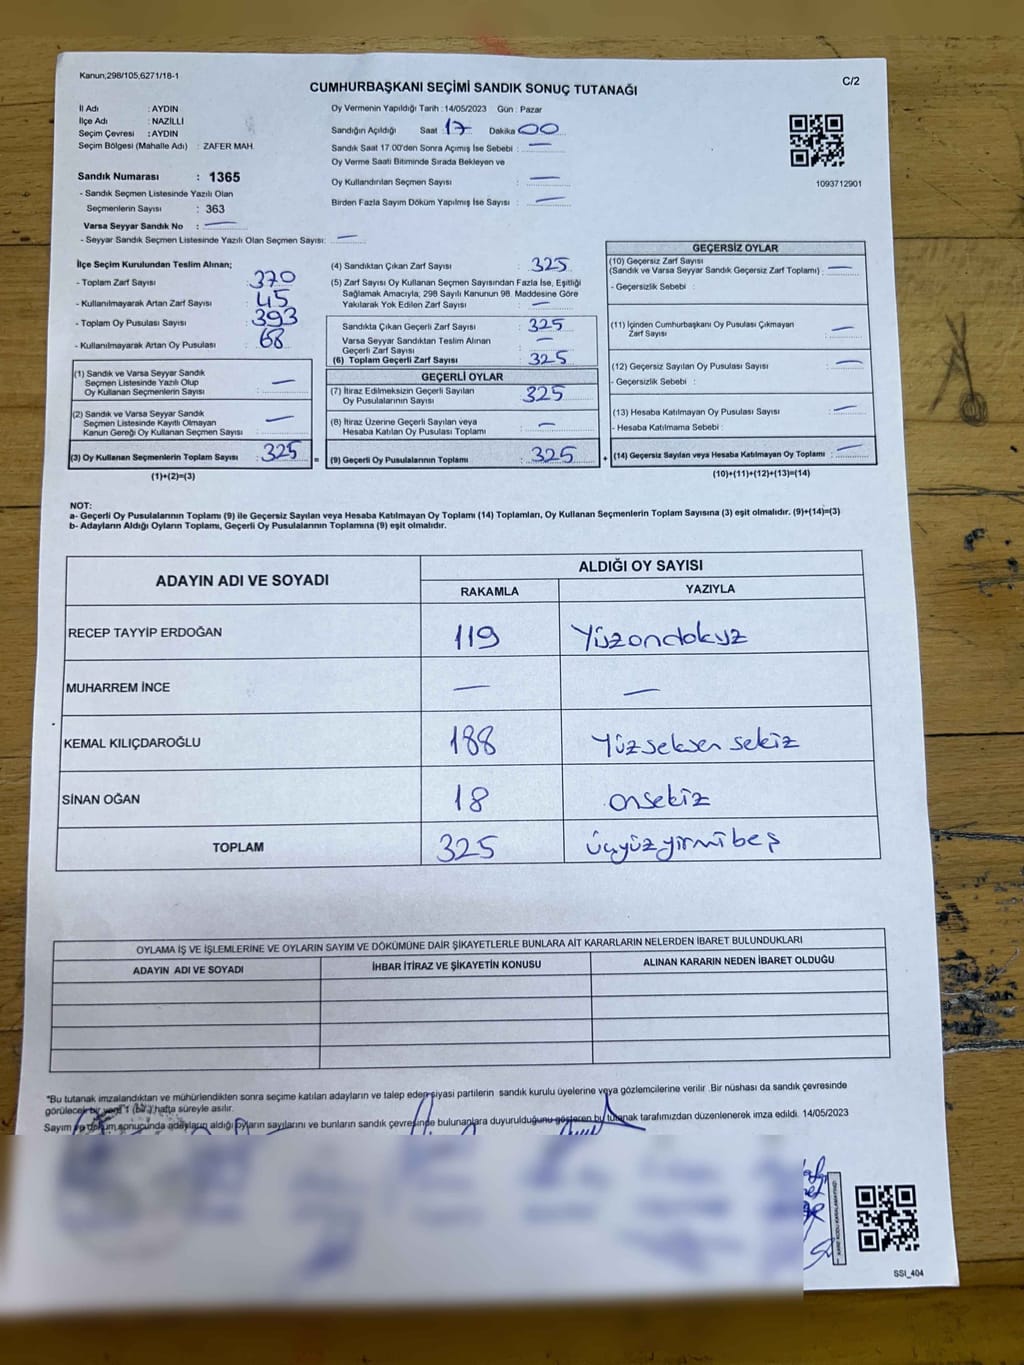 Kanun;298/105,6271/18-1
CUMHURBAŞKANI SEÇİMİ SANDIK SONUÇ TUTANAĞI
C/2
İl Adı : AYDIN
İlçe Adı : NAZİLLİ
Seçim Çevresi : AYDIN
Seçim Bölgesi (Mahalle Adı) : ZAFER MAH.
Sandık Numarası : 1365
- Sandık Seçmen Listesinde Yazılı Olan
Seçmenlerin Sayısı : 363
Varsa Seyyar Sandık No : —
- Seyyar Sandık Seçmen Listesinde Yazılı Olan Seçmen Sayısı: —
Oy Vermenin Yapıldığı Tarih : 14/05/2023 Gün : Pazar
Sandığın Açıldığı Saat 17 Dakika 00
Sandık Saat 17.00'den Sonra Açımış İse Sebebi : —
Oy Verme Saati Bitiminde Sırada Bekleyen ve
Oy Kullandırılan Seçmen Sayısı : —
Birden Fazla Sayım Döküm Yapılmış İse Sayısı : —
1093712901
İlçe Seçim Kurulundan Teslim Alınan;
- Toplam Zarf Sayısı : 370
- Kullanılmayarak Artan Zarf Sayısı : 45
- Toplam Oy Pusulası Sayısı : 393
- Kullanılmayarak Artan Oy Pusulası : 68
(1) Sandık ve Varsa Seyyar Sandık
Seçmen Listesinde Yazılı Olup
Oy Kullanan Seçmenlerin Sayısı : —
(2) Sandık ve Varsa Seyyar Sandık
Seçmen Listesinde Kayıtlı Olmayan
Kanun Gereği Oy Kullanan Seçmen Sayısı : —
(3) Oy Kullanan Seçmenlerin Toplam Sayısı : 325 =
(1)+(2)=(3)
(4) Sandıktan Çıkan Zarf Sayısı : 325
(5) Zarf Sayısı Oy Kullanan Seçmen Sayısından Fazla İse, Eşitliği
Sağlamak Amacıyla, 298 Sayılı Kanunun 98. Maddesine Göre
Yakılarak Yok Edilen Zarf Sayısı : —
Sandıkta Çıkan Geçerli Zarf Sayısı : 325
Varsa Seyyar Sandıktan Teslim Alınan
Geçerli Zarf Sayısı : —
(6) Toplam Geçerli Zarf Sayısı : 325
GEÇERLİ OYLAR
(7) İtiraz Edilmeksizin Geçerli Sayılan
Oy Pusulalarının Sayısı : 325
(8) İtiraz Üzerine Geçerli Sayılan veya
Hesaba Katılan Oy Pusulası Toplamı : —
(9) Geçerli Oy Pusulalarının Toplamı : 325 +
GEÇERSİZ OYLAR
(10) Geçersiz Zarf Sayısı
(Sandık ve Varsa Seyyar Sandık Geçersiz Zarf Toplamı) : —
- Geçersizlik Sebebi :
(11) İçinden Cumhurbaşkanı Oy Pusulası Çıkmayan
Zarf Sayısı : —
(12) Geçersiz Sayılan Oy Pusulası Sayısı : —
- Geçersizlik Sebebi :
(13) Hesaba Katılmayan Oy Pusulası Sayısı : —
- Hesaba Katılmama Sebebi :
(14) Geçersiz Sayılan veya Hesaba Katılmayan Oy Toplamı : —
(10)+(11)+(12)+(13)=(14)
NOT:
a- Geçerli Oy Pusulalarının Toplamı (9) ile Geçersiz Sayılan veya Hesaba Katılmayan Oy Toplamı (14) Toplamları, Oy Kullanan Seçmenlerin Toplam Sayısına (3) eşit olmalıdır. (9)+(14)=(3)
b- Adayların Aldığı Oyların Toplamı, Geçerli Oy Pusulalarının Toplamına (9) eşit olmalıdır.
ADAYIN ADI VE SOYADI ALDIĞI OY SAYISI
RAKAMLA YAZIYLA
RECEP TAYYİP ERDOĞAN 119 Yüzondokuz
MUHARREM İNCE — —
KEMAL KILIÇDAROĞLU 188 Yüzseksen sekiz
SİNAN OĞAN 18 onsekiz
TOPLAM 325 üçyüzyirmibeş
OYLAMA İŞ VE İŞLEMLERİNE VE OYLARIN SAYIM VE DÖKÜMÜNE DAİR ŞİKAYETLERLE BUNLARA AİT KARARLARIN NELERDEN İBARET BULUNDUKLARI
ADAYIN ADI VE SOYADI İHBAR İTİRAZ VE ŞİKAYETİN KONUSU ALINAN KARARIN NEDEN İBARET OLDUĞU
*Bu tutanak imzalandıktan ve mühürlendikten sonra seçime katılan adayların ve talep eden siyasi partilerin sandık kurulu üyelerine veya gözlemcilerine verilir .Bir nüshası da sandık çevresinde
görülecek bir yere 1 (bir) hafta süreyle asılır.
Sayım ve döküm sonucunda adayların aldığı oyların sayılarını ve bunların sandık çevresinde bulunanlara duyurulduğunu gösteren bu tutanak tarafımızdan düzenlenerek imza edildi. 14/05/2023
SSI_404